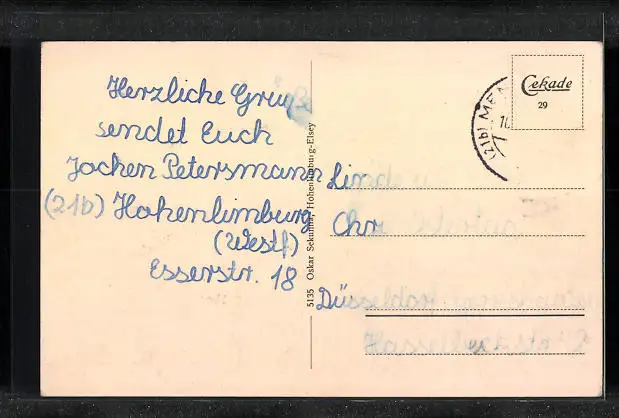 Herzliche Grüße
sendet Euch
Jochen Petersmann
(21b) Hohenlimburg
(Westf)
Esserstr. 18
5135 Oskar Sekunna, Hohenlimburg-Elsey
Cekade
29
(21b) MEN
10
Lin
Chr
Düss